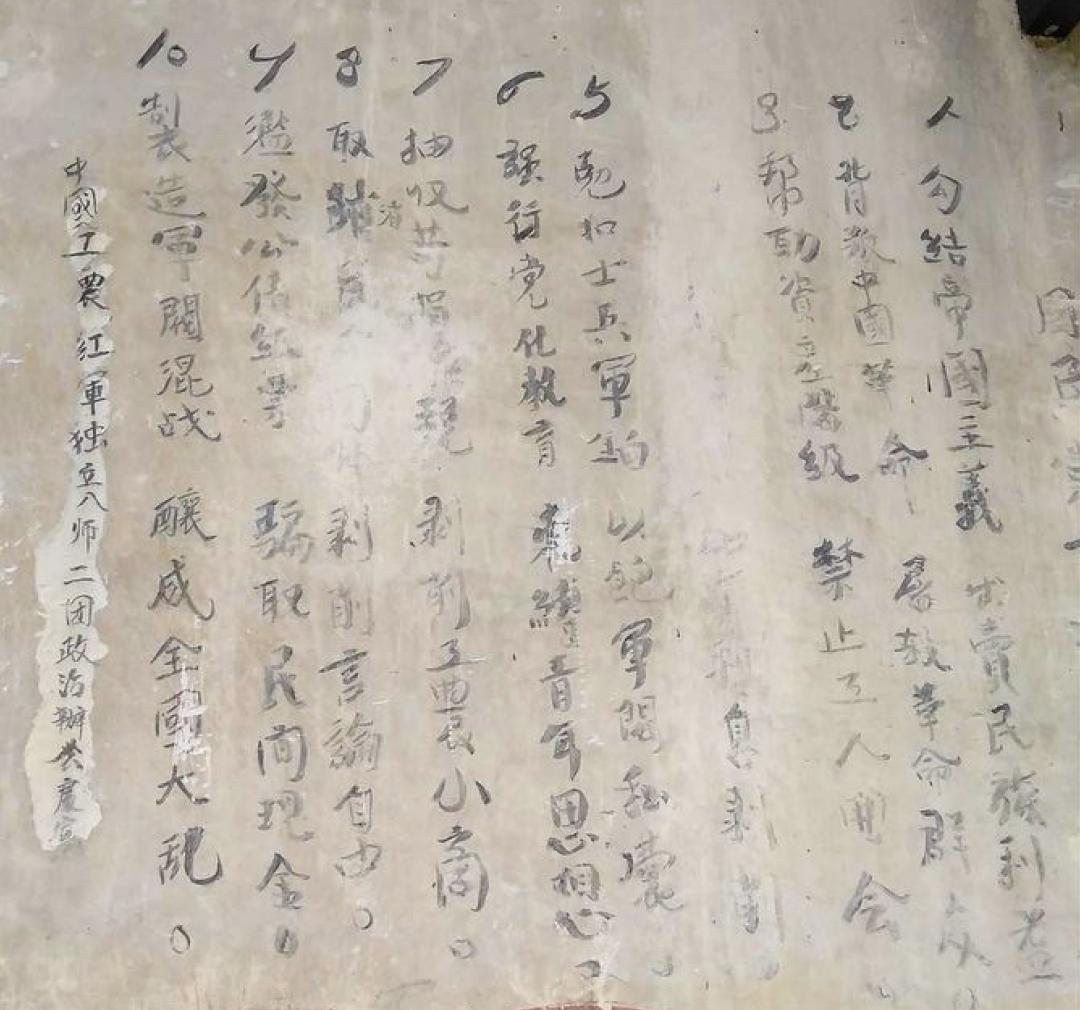 國民党
1 勾結帝國主義 出賣民族利益
2 背叛中國革命 屠殺革命群众。
3 帮助資产階級 禁止工人開会。
息剥削。
5 尅扣士兵軍餉 以飽軍閥私囊。
6 强行党化教育 青年思想
7 抽收苛捐税 剥削工農小商。
8 取消 剥削言論自由。
9 濫發公债紙票 騙取民间現金。
10 製造軍閥混战 釀成全國大乱。
中國工農红軍独立八师二团政治辦公處宣